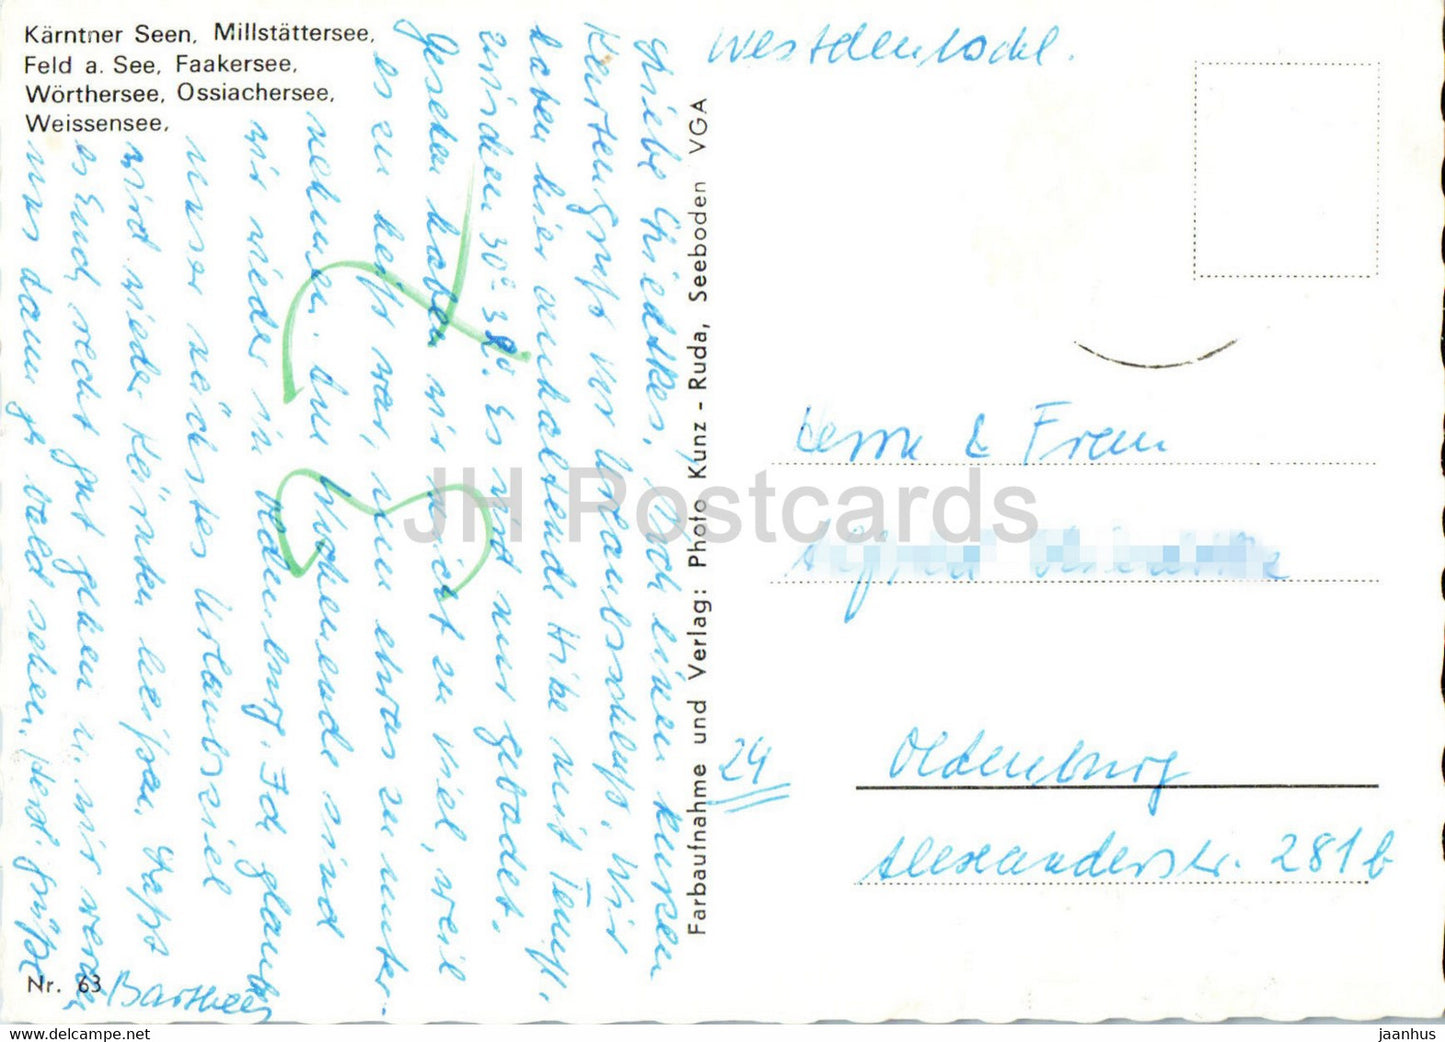 Kärntner Seen, Millstättersee,
Feld a. See, Faakersee,
Wörthersee, Ossiachersee,
Weissensee,
Westdeutschl.
Noch einen kurzen
Kartengruß vor Urlaubsschluß. Wir
haben hier anhaltende Hitze mit Temp.
zwischen 30°-38°. Es wird nur gebadet.
Gesehen haben wir nicht zu viel, weil
es zu heiß war, um etwas zu unter-
nehmen. Am Wochenende sind
wir wieder in Oldenburg. Ich glaube
unser nächstes Urlaubsziel
wird wieder Kärnten heißen. Hofft
es Euch recht gut gehen u. wir werden
uns dann ja bald sehen. Herzl. Grüße
Farbaufnahme und Verlag: Photo Kunz - Ruda, Seeboden VGA
Herrn & Frau
Alfred
24
Oldenburg
Alexanderstr. 281b
Nr. 63
JH Postcards
www.delcampe.net
jaanhus